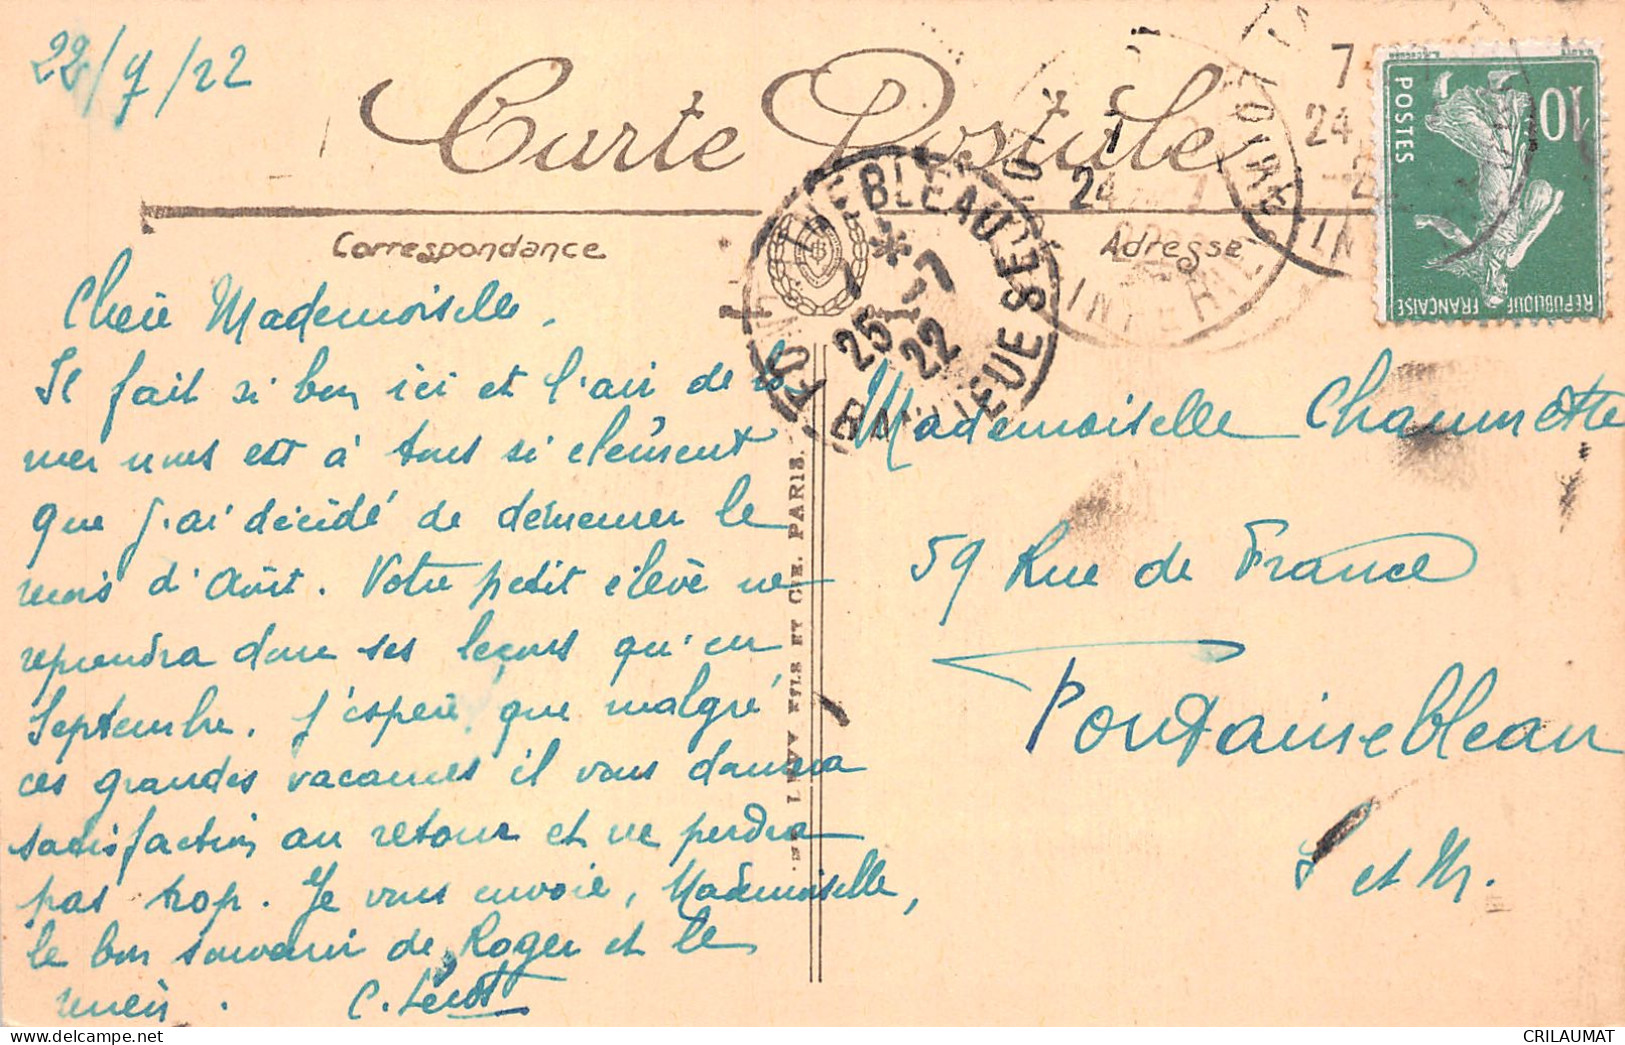 22/7/22
Carte Postale
Correspondance
Adresse
POSTES
10
REPUBLIQUE FRANÇAISE
FONTAINEBLEAU
25 - 7
22
24
Chère Mademoiselle,
Il fait si bon ici et l'air de la
mer nous est à tous si clément
que j'ai décidé de demeurer le
mois d'Août. Votre petit élève ne
reprendra donc ses leçons qu'en
Septembre. J'espère que malgré
ces grandes vacances il vous donnera
satisfaction au retour et ne perdra
pas trop. Je vous envoie, Mademoiselle,
le bon souvenir de Roger et le
mien.
Mademoiselle Chaumette
59 Rue de France
Fontainebleau
S et M.
LEVY FILS ET CIE. PARIS.
CRILAUMAT